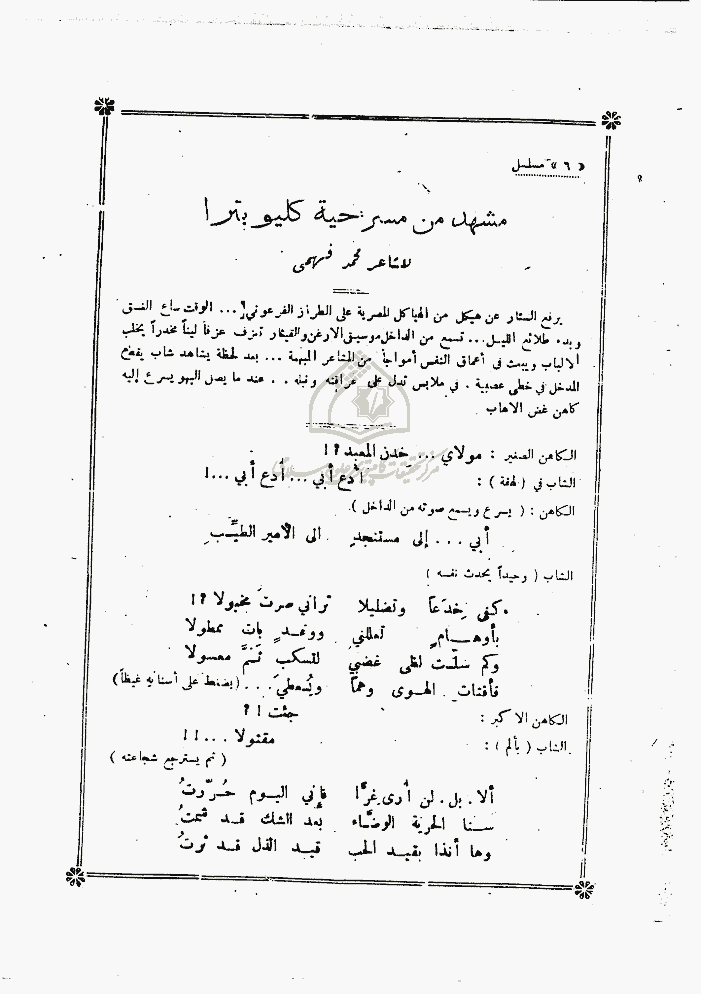 « ٦ » مسلسل
مشهد من مسرحية كليوبترا
للشاعر محمد فهمي
يرفع الستار عن هيكل من الهياكل المصرية على الطراز الفرعوني ... الوقت ساع الغسق
وبدء طلائع الليل ... تسمع من الداخل موسيقى الارغن والقيثار تعزف عزفاً ليناً مخدراً يخلب
الالباب ويبعث في أعماق النفس أمواجاً من المشاعر المبهمة ... بعد لحظة يشاهد شاب يقطع
المدخل في خطى عصبية . في ملابس تدل على عراقته ونبله . . عند ما يصل البهو يسرع إليه
كاهن غض الاهاب
الكاهن الصغير : مولاي ... خدن المعبد ؟!
الشاب في ( لهفة ) : أدع أبي ... أدع أبي ...!
الكاهن : ( يسرع ويسمع صوته من الداخل ).
أبي ... إلى مستنجد الى الأمير الطيِّب
الشاب ( وحيداً يحدث نفسه )
كفى خِدَعاً وتضليلا تراني صرت مخبولا ؟!
بأوهـام تعللني ووعـد بات ممطولا
وكم سلّت لظى غضبي لتسكب ثَمَّ معسولا
فأقتات الهوى وهماً ويُعطي ... ( يضغط على أسنانه غيظاً )
الكاهن الاكبر : جئت ! ؟
الشاب ( بألم ) : مقتولا ... !!
( ثم يسترجع شجاعته )
ألا . بل . لن أُرى غرًّا فإني اليوم حُرّرتُ
سنا الحرية الوضّاء بعد الشك قد شمتُ
وها أنذا بقيد الحب قيد الذل قد ثرتُ
مركز تحقيقات كامپيوتري علوم اسلامي